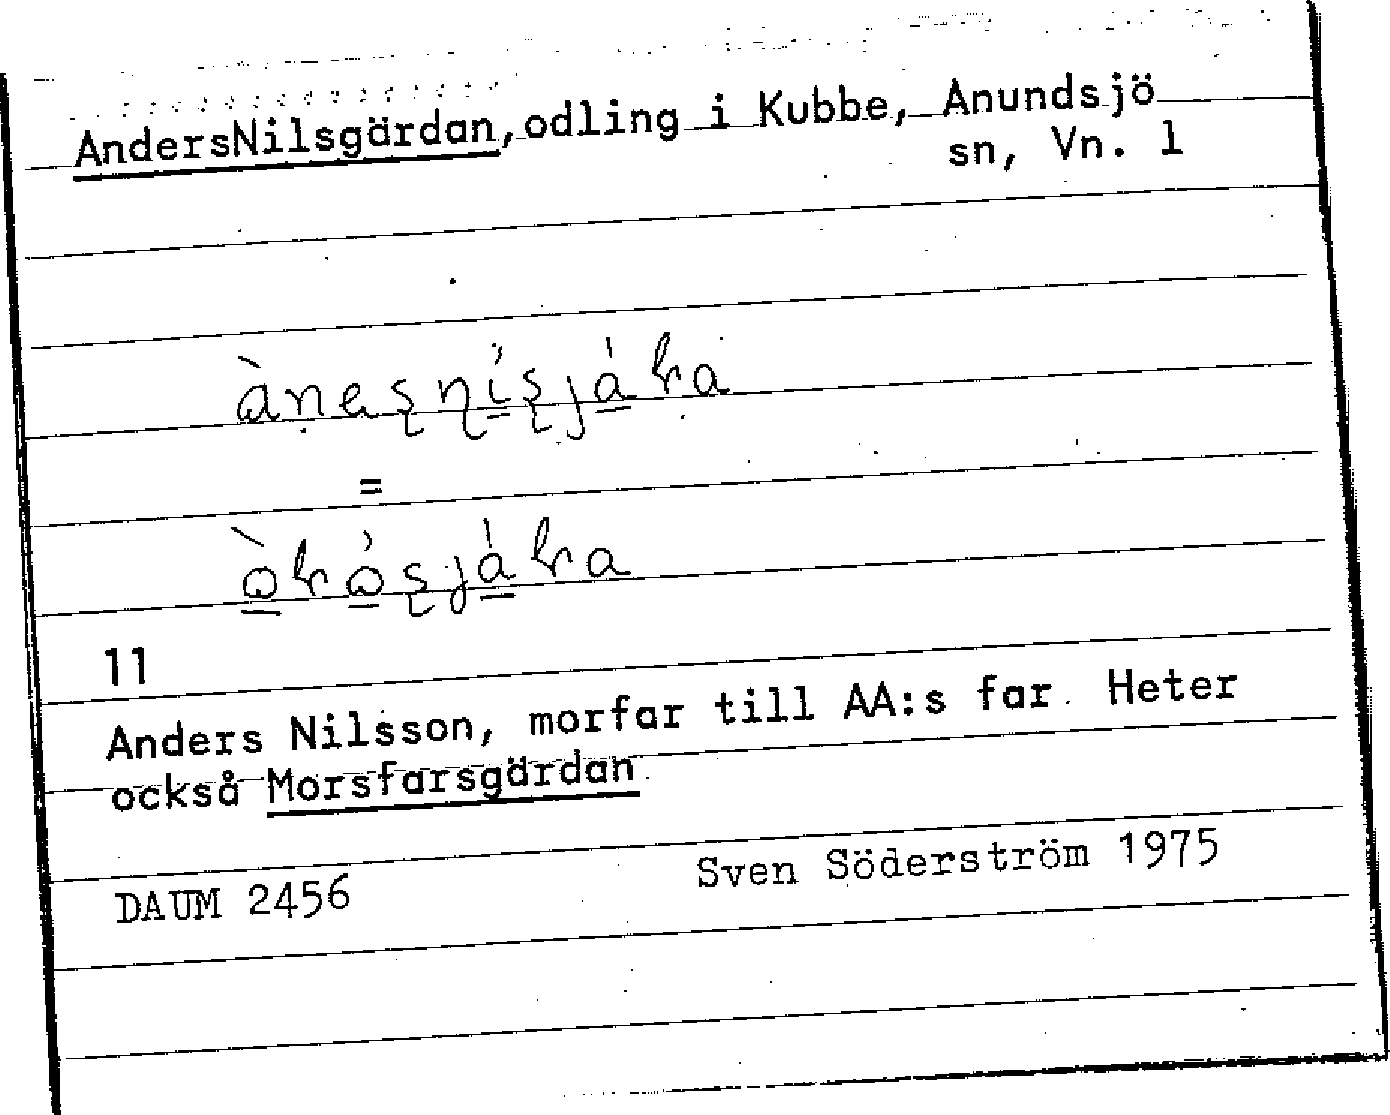 AndersNilsgärdan, odling i Kubbe, Anundsjö
sn, Vn. 1
=
11
Anders Nilsson, morfar till AA:s far. Heter
också Morsfarsgärdan
DAUM 2456
Sven Söderström 1975